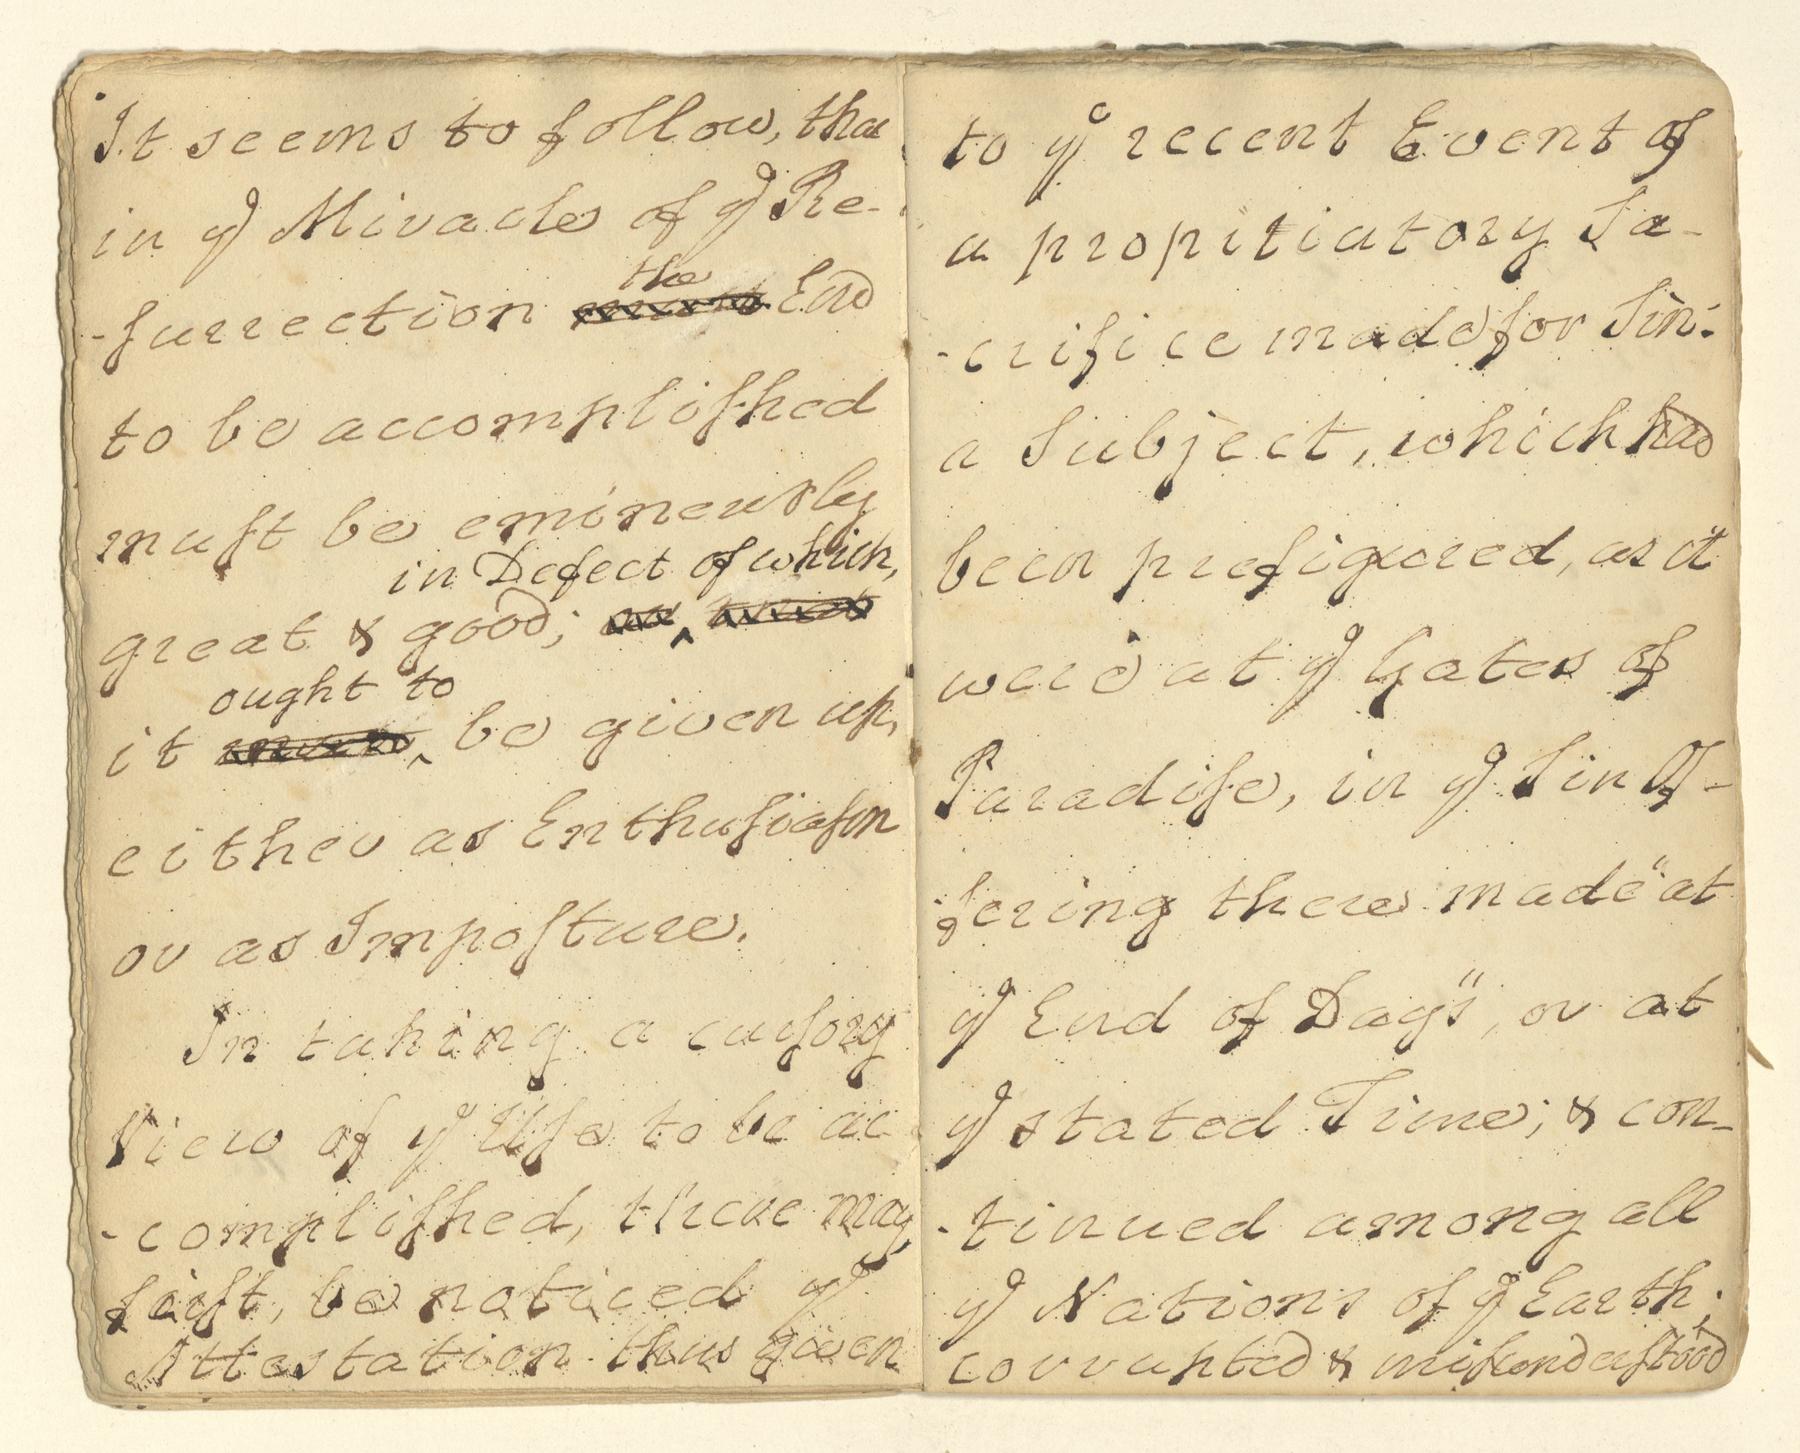 It seems to follow, that
in yᵉ Miracle of yᵉ Re-
-ſurrection the End
to be accompliſhed
muſt be eminently
in Defect of which,
great & good;
ought to
it be given up,
either as Enthuſiaſm
or as Impoſture.
In taking a curſory
View of yᵉ Uſe to be ac
-compliſhed, there may,
firſt, be noticed yᵉ
Attestation thus given
to yᵉ recent Event of
a propitiatory Sa-
-crifice made for Sin:
a Subject, which had
been prefigured, as it
were at yᵉ Gates of
Paradiſe, in yᵉ Sin Of-
-fering there made "at
yᵉ End of Days", or at
yᵉ stated Time; & con-
-tinued among all
yᵉ Nations of yᵉ Earth;
corrupted & miſunderſtood